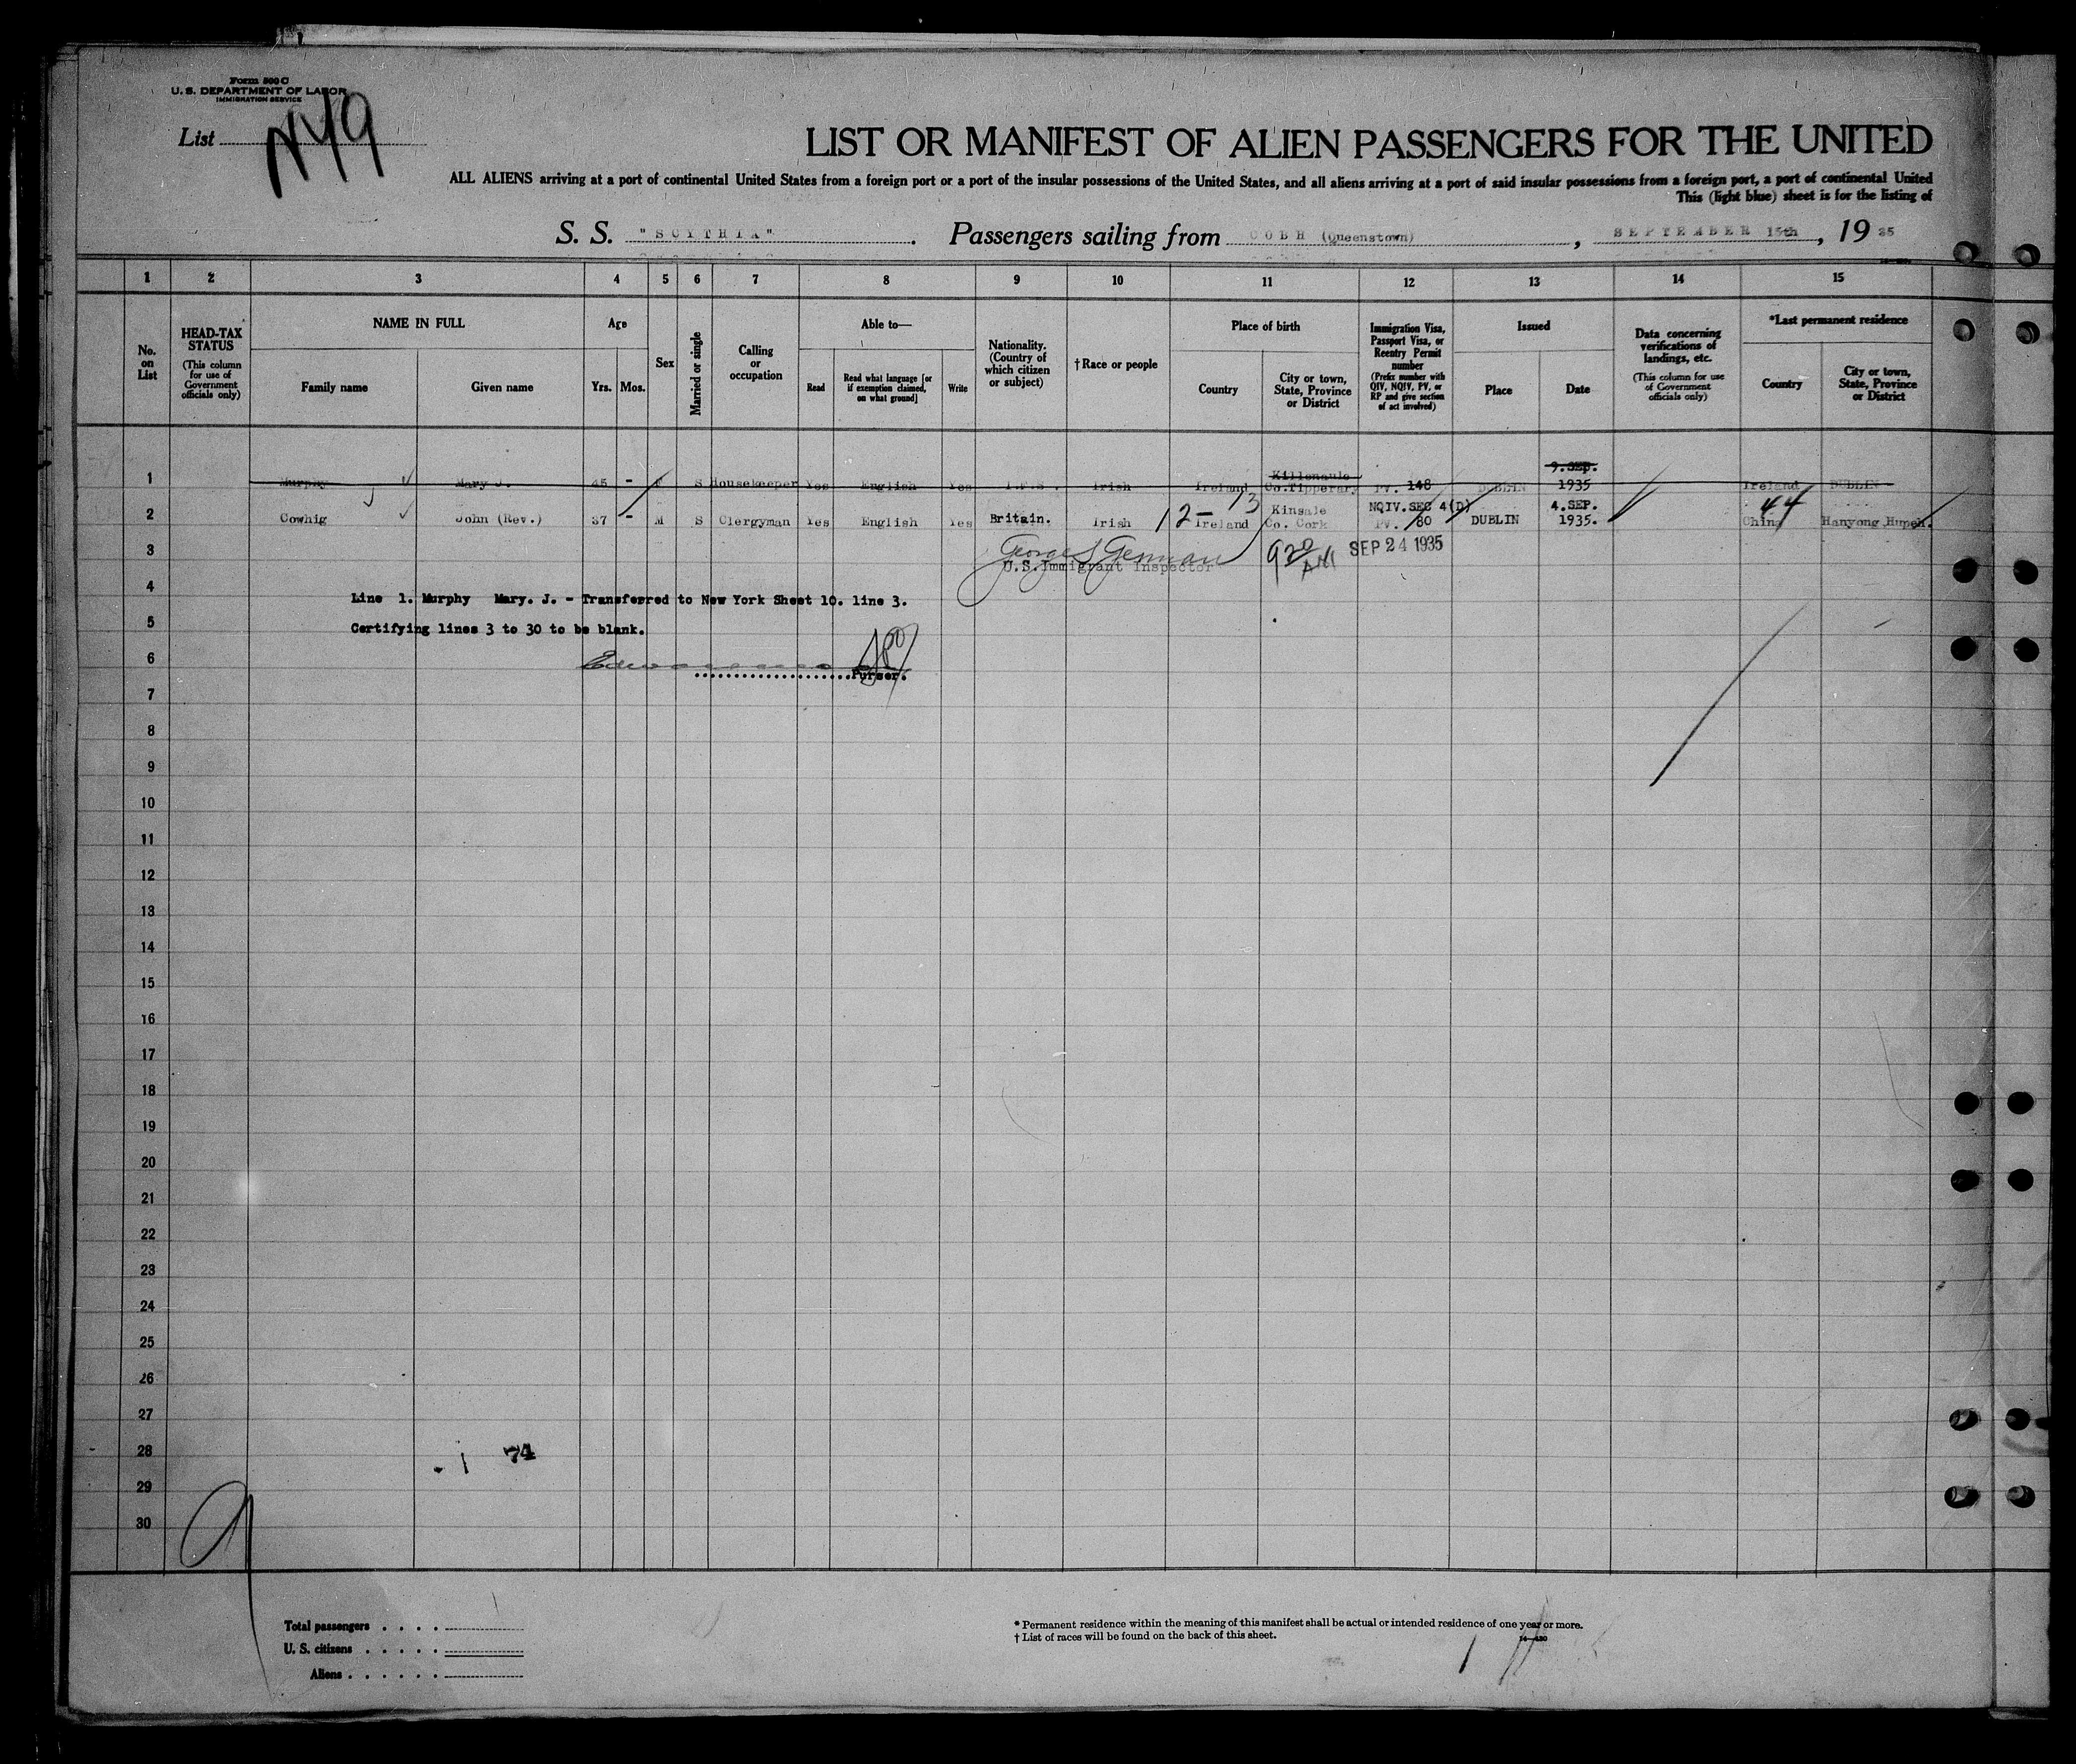 Form 500 C
U. S. DEPARTMENT OF LABOR
IMMIGRATION SERVICE
List NY9
LIST OR MANIFEST OF ALIEN PASSENGERS FOR THE UNITED
ALL ALIENS arriving at a port of continental United States from a foreign port or a port of the insular possessions of the United States, and all aliens arriving at a port of said insular possessions from a foreign port, a port of continental United
This (light blue) sheet is for the listing of
S. S. "SCYTHIA". Passengers sailing from COBH (Queenstown), SEPTEMBER 15th, 1935
1 2 3 4 5 6 7 8 9 10 11 12 13 14 15
No. on List
HEAD-TAX STATUS
(This column for use of Government officials only)
NAME IN FULL
Family name
Given name
Age
Yrs.
Mos.
Sex
Married or single
Calling or occupation
Able to—
Read
Read what language [or if exemption claimed, on what ground]
Write
Nationality. (Country of which citizen or subject)
† Race or people
Place of birth
Country
City or town, State, Province or District
Immigration Visa, Passport Visa, or Reentry Permit number
(Prefix number with QIV, NQIV, PV, or RP and give section of act involved)
Issued
Place
Date
Data concerning verifications of landings, etc.
(This column for use of Government officials only)
*Last permanent residence
Country
City or town, State, Province or District
1 Murphy Mary J. 45 - F S Housekeeper Yes English Yes I.F.S. Irish Ireland Killenaule Co.Tipperary PV. 148 DUBLIN 9.SEP. 1935 Ireland DUBLIN
2 Cowhig John (Rev.) 37 - M S Clergyman Yes English Yes Britain. Irish 12- 13 Ireland Kinsale Co. Cork NQIV.SEC 4(D) PV. 80 DUBLIN 4.SEP. 1935. 44 China Hanyong Hupeh.
3 George S German 9 20 AM SEP 24 1935
U.S.Immigrant Inspector
4 Line 1. Murphy Mary. J. - Transferred to New York Sheet 10. line 3.
5 Certifying lines 3 to 30 to be blank.
6
Purser.
7
8
9
10
11
12
13
14
15
16
17
18
19
20
21
22
23
24
25
26
27
28 1 74
29
30
9
Total passengers
U. S. citizens
Aliens
* Permanent residence within the meaning of this manifest shall be actual or intended residence of one year or more.
† List of races will be found on the back of this sheet.